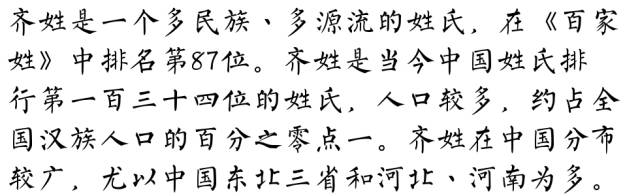 齐姓是一个多民族、多源流的姓氏，在《百家
姓》中排名第87位。齐姓是当今中国姓氏排
行第一百三十四位的姓氏，人口较多，约占全
国汉族人口的百分之零点一。齐姓在中国分布
较广，尤以中国东北三省和河北、河南为多。